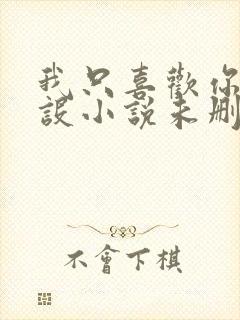 我只喜歡你
設小說未刪
不會下棋